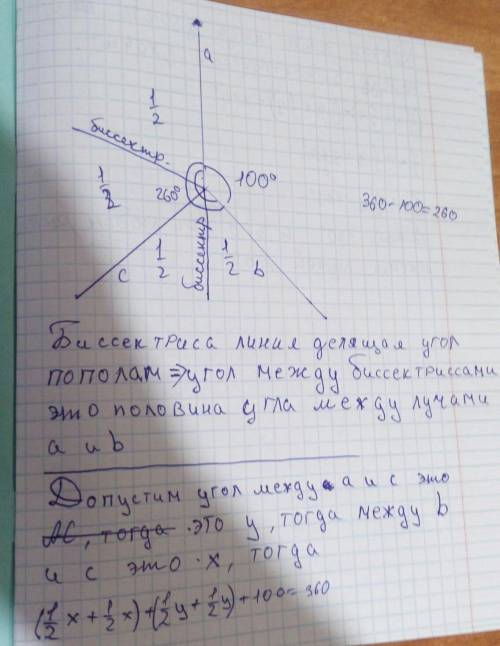 a
1/2
биссектр.
100°
1/2
260°
360-100=260
1/2
биссектр
1/2
b
c
Биссектриса линия делящая угол
пополам ⇒ угол между биссектриссами
это половина угла между лучами
a и b
Допустим угол между a и c это
АС, тогда это y, тогда между b
и c это x, тогда
(1/2 x + 1/2 x) + (1/2 y + 1/2 y) + 100 = 360